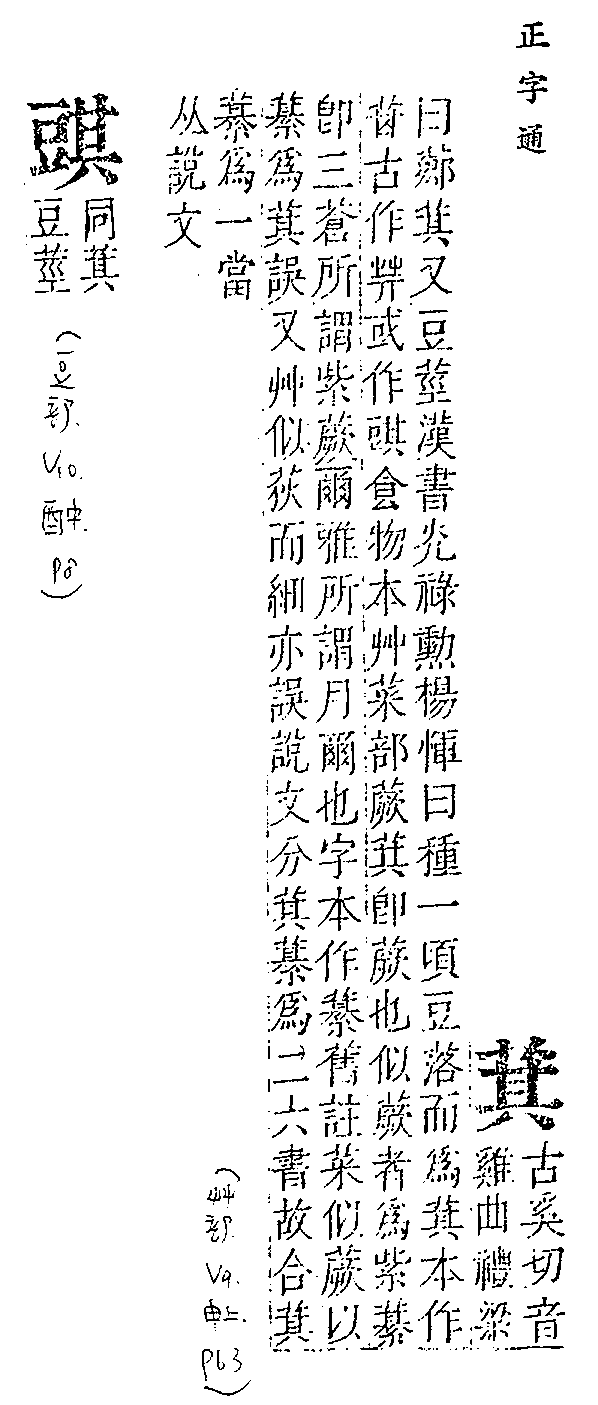 正字通
萁
古奚切音
雞曲禮粱
曰薌萁又豆莖漢書光祿勳楊惲曰種一頃豆落而為萁本作
古作或作䜺食物本艸菜部蕨萁即蕨也似蕨者為紫藄
即三蒼所謂紫蕨爾雅所謂月爾也字本作藄舊註菜似蕨以
藄為萁誤又艸似荻而細亦誤說文分萁藄為二六書故合萁
藄為一當
从說文
(艸部. V9. 申上. P63)
䜺
同萁
豆莖
(豆部. V10. 酉中. P8)